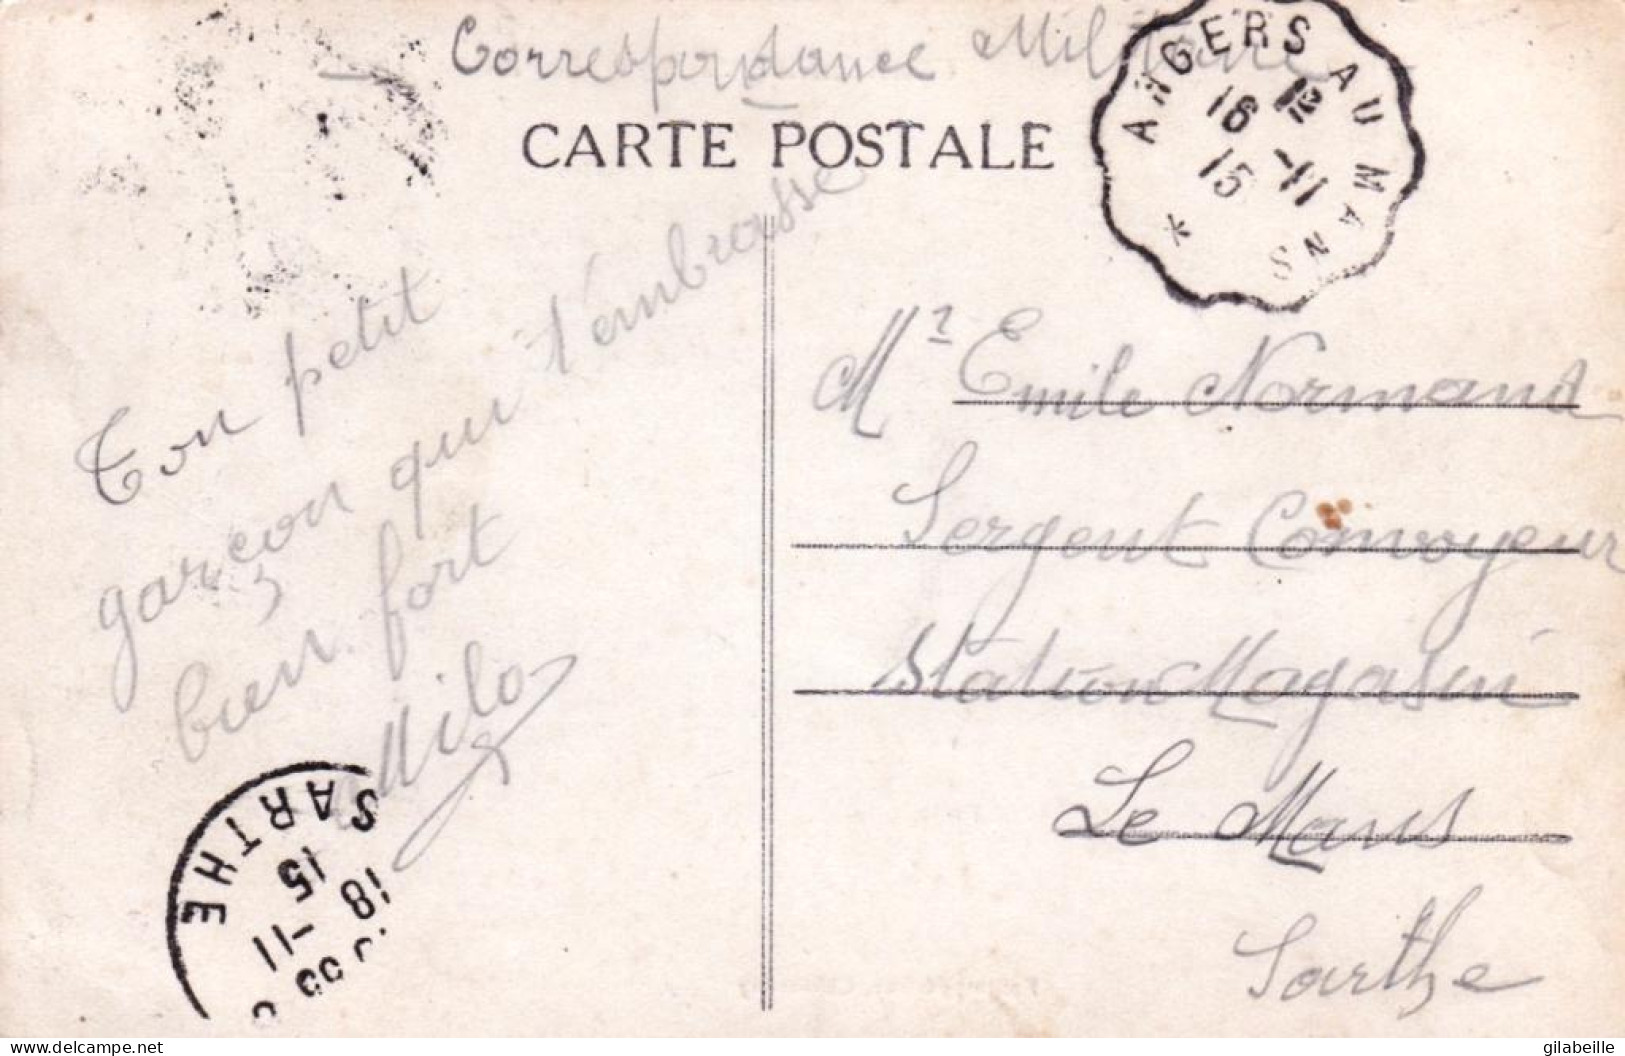 Correspondance Militaire
CARTE POSTALE
ANGERS AU MANS
16 -11
15
Ton petit
garçon qui t'embrasse
bien fort
Milo
Mr Emile Normand
Sergent Convoyeur
Station Magasin
Le Mans
Sarthe
SARTHE
18 -11
15
delcampe.net
gilabeille